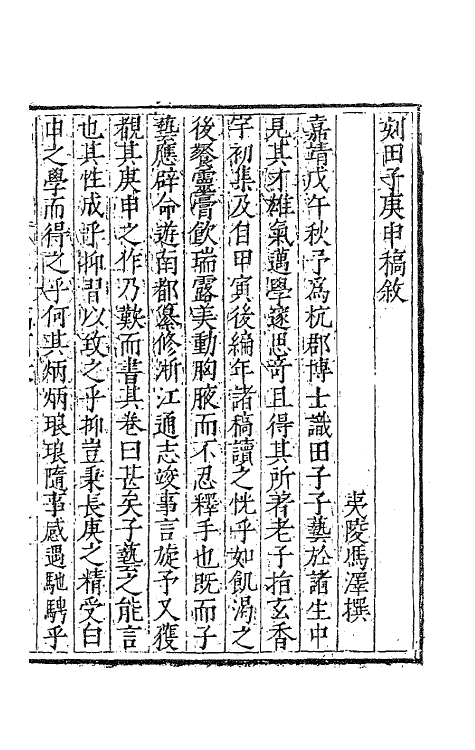 刻田子庚申稿敘
夷陵馮澤撰
嘉靖戊午秋予爲杭郡博士識田子子藝於諸生中
見其才雄氣邁學邃思奇且得其所著老子指玄香
宇初集及自甲寅後編年諸稿讀之恍乎如飢渴之
後餐靈膏飲瑞露美動胸腋而不忍釋手也既而子
藝應辟命遊南都纂修浙江通志竣事言旋予又獲
觀其庚申之作乃歎而書其卷曰甚矣子藝之能言
也其性成乎抑習以致之乎抑豈秉長庚之精受白
申之學而得之乎何其炳炳琅琅隨事感遇馳騁乎